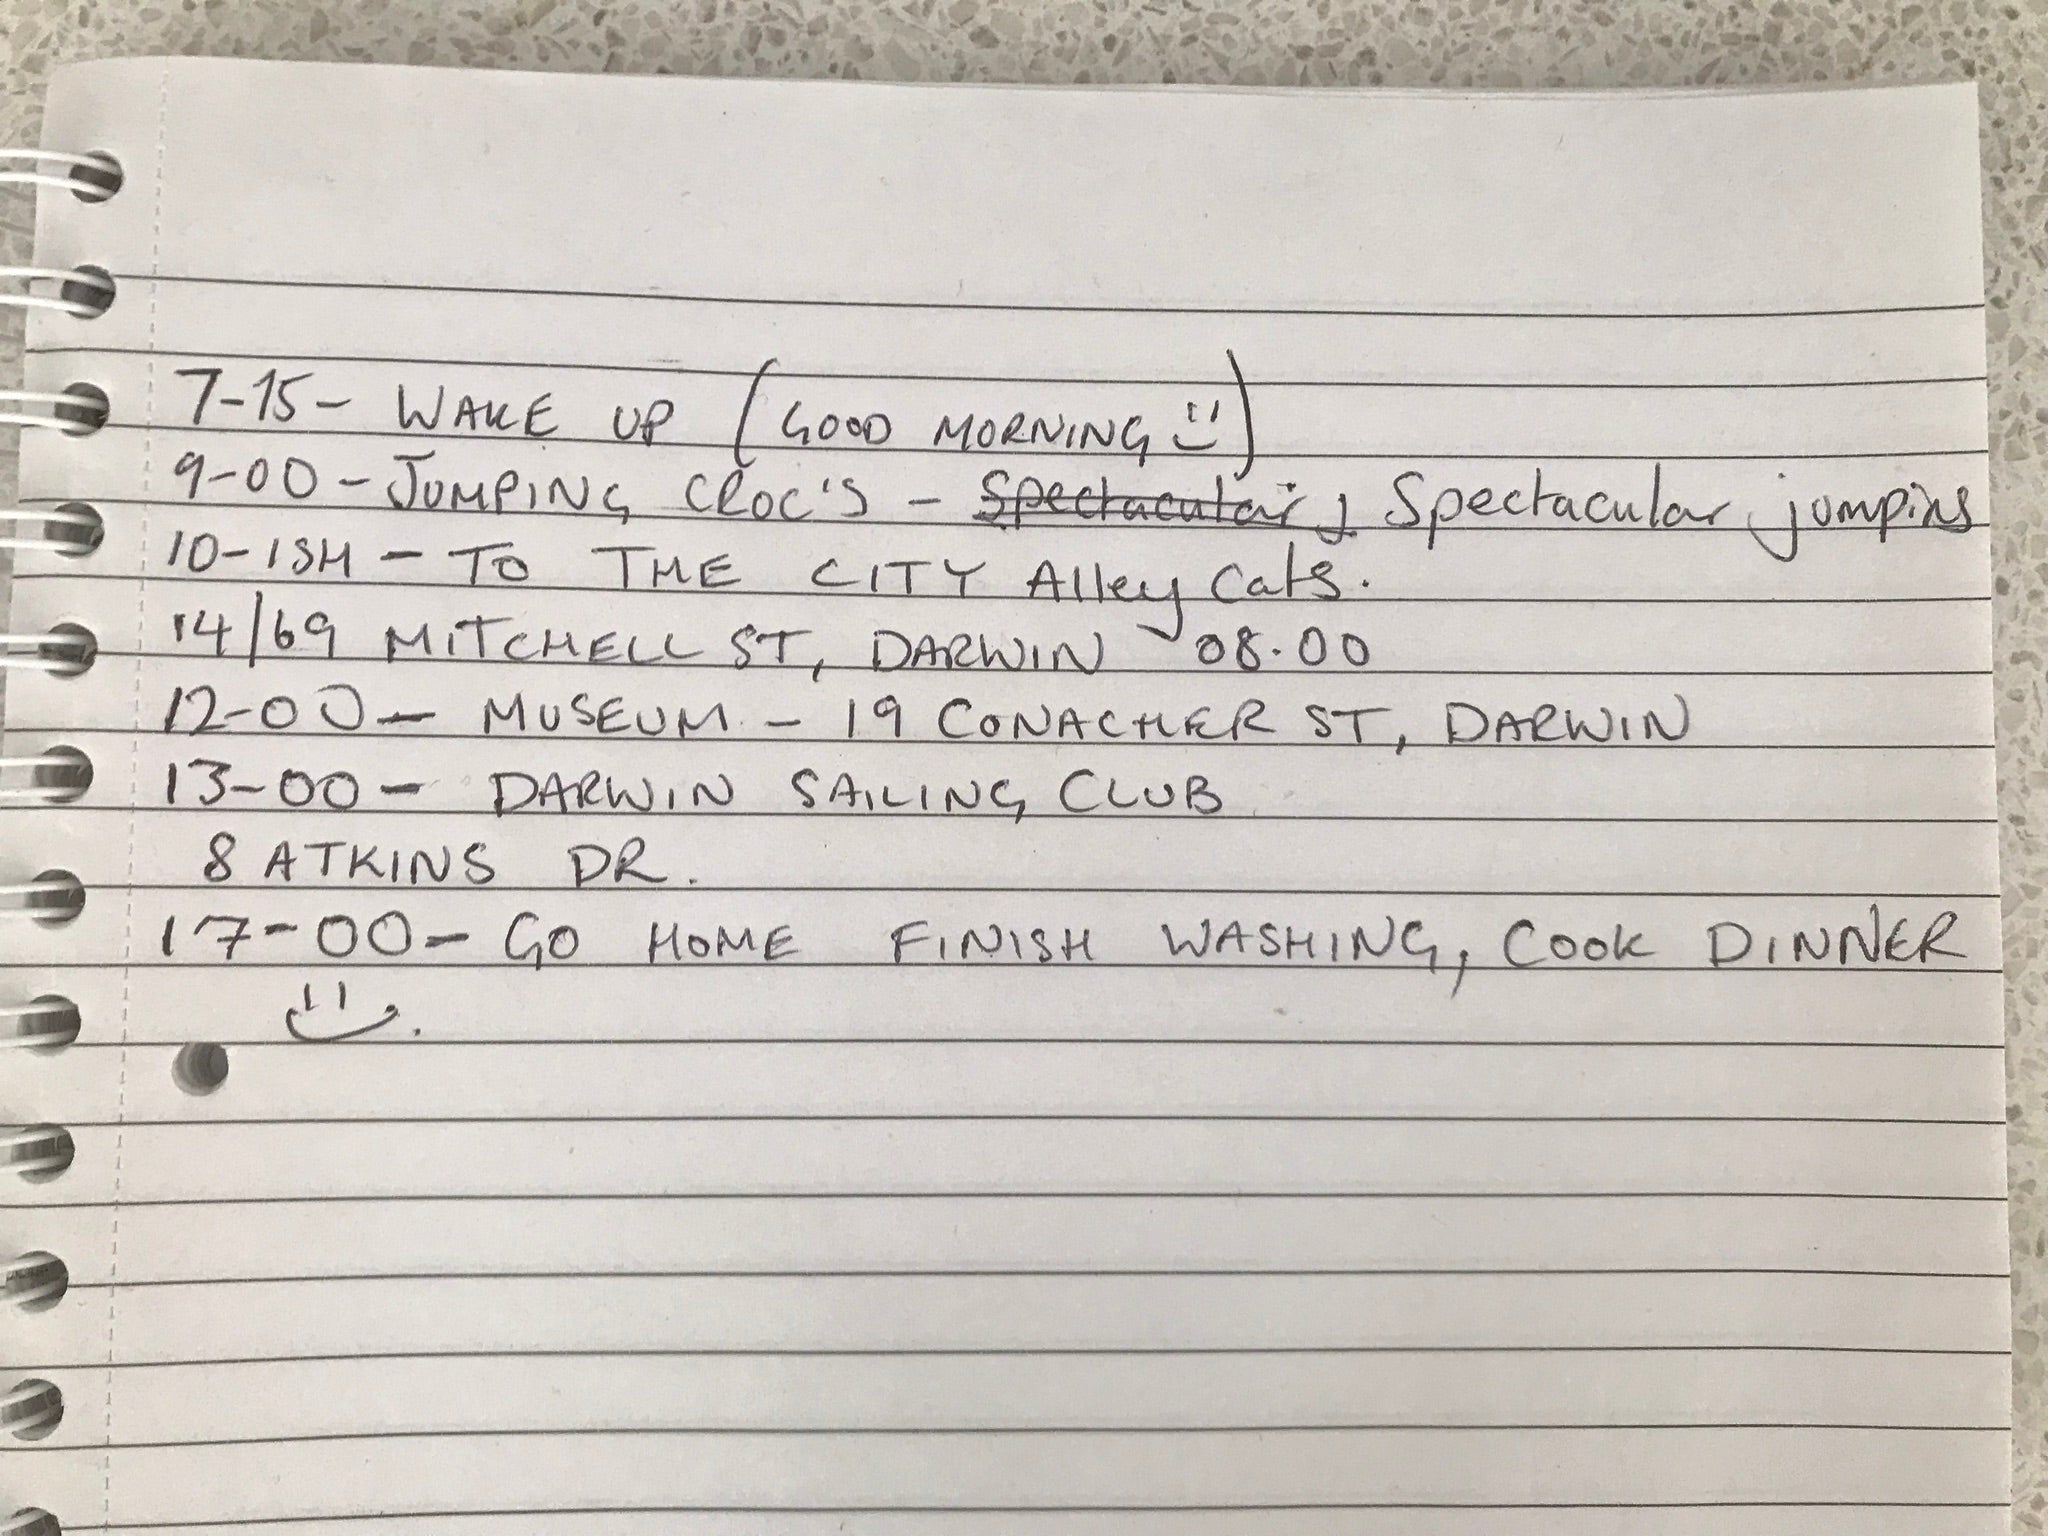 7-15- WAKE UP (GOOD MORNING)
9-00 - JUMPING CROC'S - Spectacular j Spectacular jumping
10-ISH - TO THE CITY Alley Cats.
14/69 MITCHELL ST, DARWIN 08.00
12-00 - MUSEUM - 19 CONACHER ST, DARWIN
13-00 - DARWIN SAILING CLUB
8 ATKINS DR.
17-00 - GO HOME FINISH WASHING, COOK DINNER